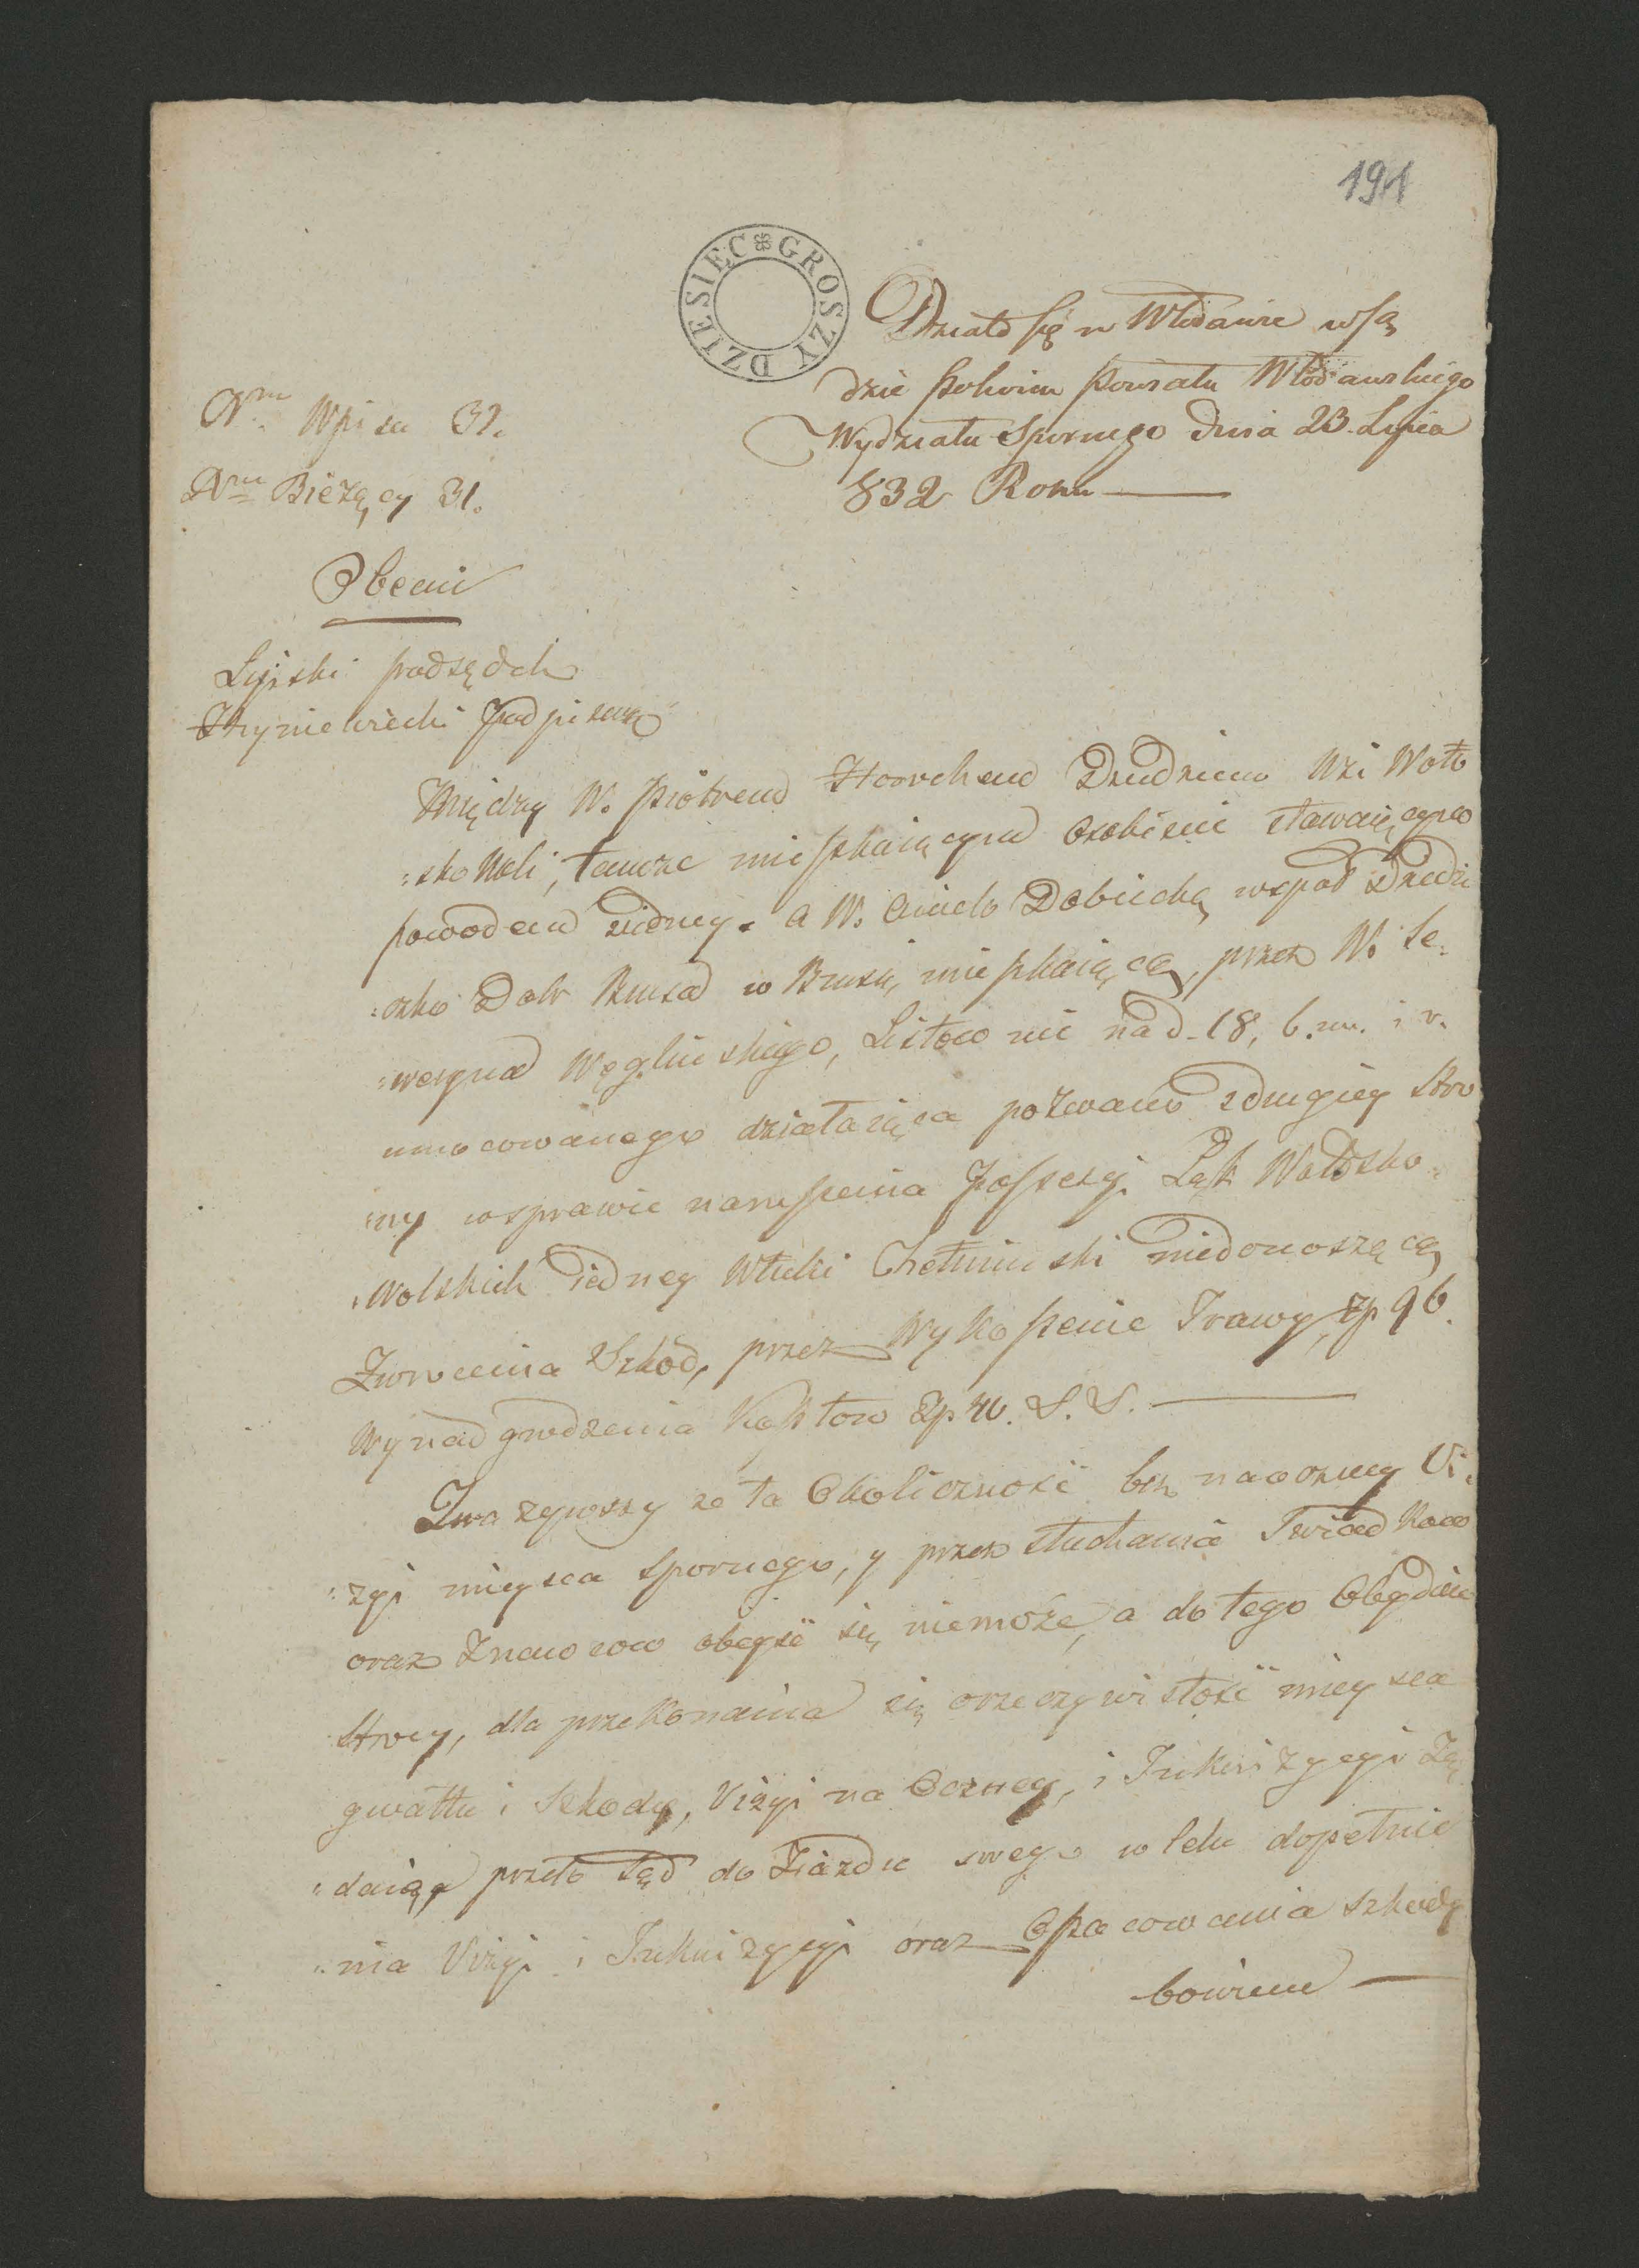 191
DZIESIĘC GROSZY
Działo się w Włodawie w Są
dzie Pokoiu Powiatu Włodawskiego
Wydziału Spornego Dnia 23 Lipca
832 Roku
Nrm Wpisu 32.
Nrm Bieżący 31.
Obecni
Lipski podsędek
Hryniewiecki Podpisarz
Między W. Piotrem Horochem Dziedzicem Wsi Woło
:sko Woli, tamże mieszkaiącym Osobiście stawaiącym
powodem z iedney. a W. Anielo Dobiecką wspoł Dziedzi
:czko Dobr Brusa w Brusu, mieszkaiącą, przez W. Se.
:weryna Węglinskiego, Listownie nad. 18, b. m. i r.
umocowanego działaiąca pozwano z drugiey stro
:ny w sprawie naruszenia Possesyi Łąk Wołosko
:Wolskich iedney Włuki Chełminski niedonoszącą
Zwrucenia Szkod, przez Wykoszenie Trawy, zp 96.
Wynadgrodzenia Kosztow Zp 40. S. S.
Zważywszy że ta Okoliczność bez naoczney Vi,
:zyi mieysca spornego, y przez słuchania Swiadkow
oraz Znawcow obeyść się niemoże, a do tego Obydwie
Strony, dla przekonania się o rzeczywistość mieysca
gwałtu i Szkody, Vizyi na Oczney, i Inkwizycyi Żą
:daią, przeto Sąd do Ziazdu swego w lelu dopełnie
:nia Vizyi i Inkwizycyi oraz Oszacowania szkody
bowiem